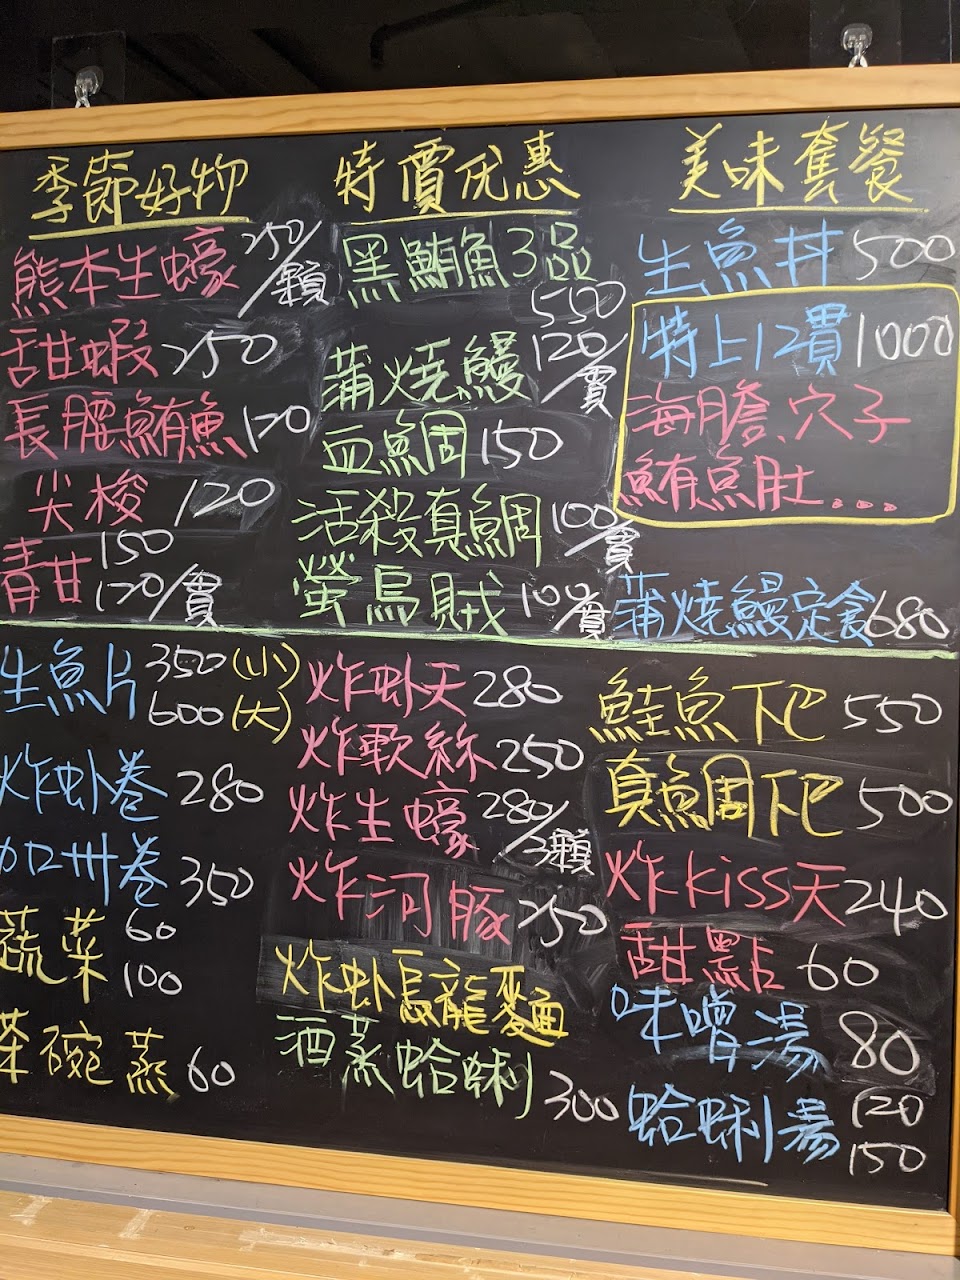 季節好物
熊本生蠔 250/顆
甜蝦 250
長腰鮪魚 120
尖梭 120
青甘 150
120/貫
特價优惠
黑鮪魚3品
550
蒲燒鰻 120/貫
血鯛 150
活殺真鯛 100/貫
螢烏賊 100/貫
美味套餐
生魚丼 500
特上12貫 1000
海膽、穴子
鮪魚肚...
蒲燒鰻定食 680
生魚片 350 (小)
600 (大)
炸虾卷 280
加州卷 350
蔬菜 60
100
茶碗蒸 60
炸虾天 280
炸軟絲 250
炸生蠔 280/3顆
炸河豚 250
炸虾烏龍麵
酒蒸蛤蜊 300
鮭魚下巴 550
真鯛下巴 500
炸kiss天 240
甜點 60
味噌湯 80
蛤蜊湯 120
150